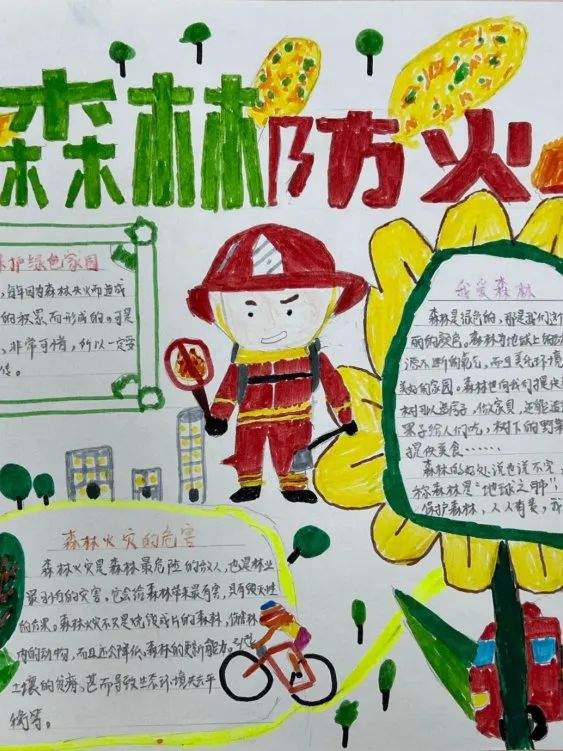 森林防火
护绿色家园
每年因为森林失火而造成
的效果而形成的。可是
、非常可惜，所以一定要
传。
我爱森林
森林是绿色的，那是我们
丽的颜色。森林为地球上的
源不断的氧气，而且美化环境
美好的家园。森林也向我们提供
树可以造房子，做家具，还能
果子给人们吃，树下的野
提供美食……
森林的好处说也说不完，
称森林是“地球之肺”
保护森林，人人有责，
森林火灾的危害
森林火灾是森林最危险的敌人，也是林业
最可怕的灾害，它会给森林带来最有害，具有毁灭性
的后果。森林火灾不只是烧毁成片的森林，伤害林
内的动物，而且还会降低森林的更新能力，引起
土壤的贫瘠，甚而导致生态环境失去平
衡等。